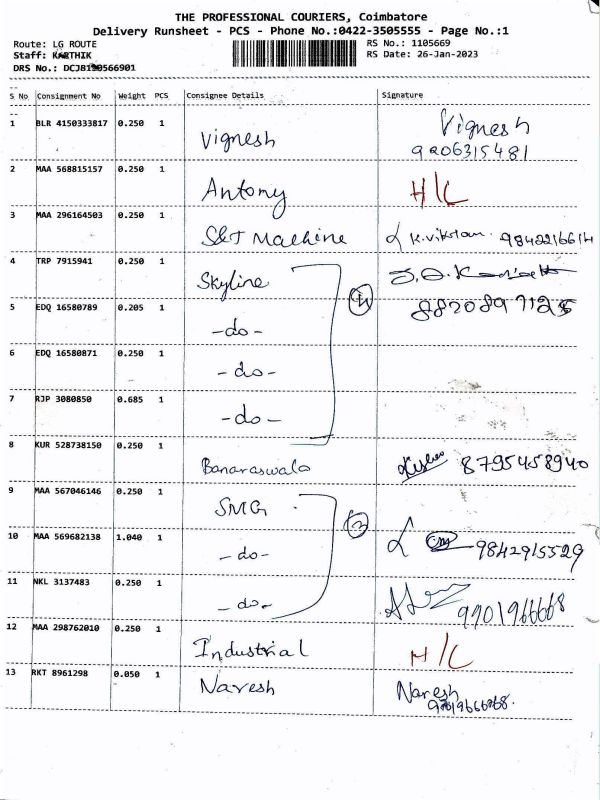 THE PROFESSIONAL COURIERS, Coimbatore
Delivery Runsheet - PCS - Phone No.:0422-3505555 - Page No.:1
Route: LG ROUTE
Staff: KARTHIK
DRS No.: DCJB190566901
RS No.: 1105669
RS Date: 26-Jan-2023
S No Consignment No Weight PCS Consignee Details Signature
1 BLR 4150333817 0.250 1 Vignesh Vignesh
9206315481
2 MAA 568815157 0.250 1 Antony H/C
3 MAA 296164503 0.250 1 S&T Machine K.Vikram 9842216614
4 TRP 7915941 0.250 1 Skyline 4
5 EDQ 16580789 0.205 1 -do- 8820897125
6 EDQ 16580871 0.250 1 -do-
7 RJP 3080850 0.685 1 -do-
8 KUR 528738150 0.250 1 Banaraswala 8795458940
9 MAA 567046146 0.250 1 SMG 3
10 MAA 569682138 1.040 1 -do- 9842915529
11 NKL 3137483 0.250 1 -do- 9901966668
12 MAA 298762010 0.250 1 Industrial H/C
13 RKT 8961298 0.050 1 Naresh Naresh